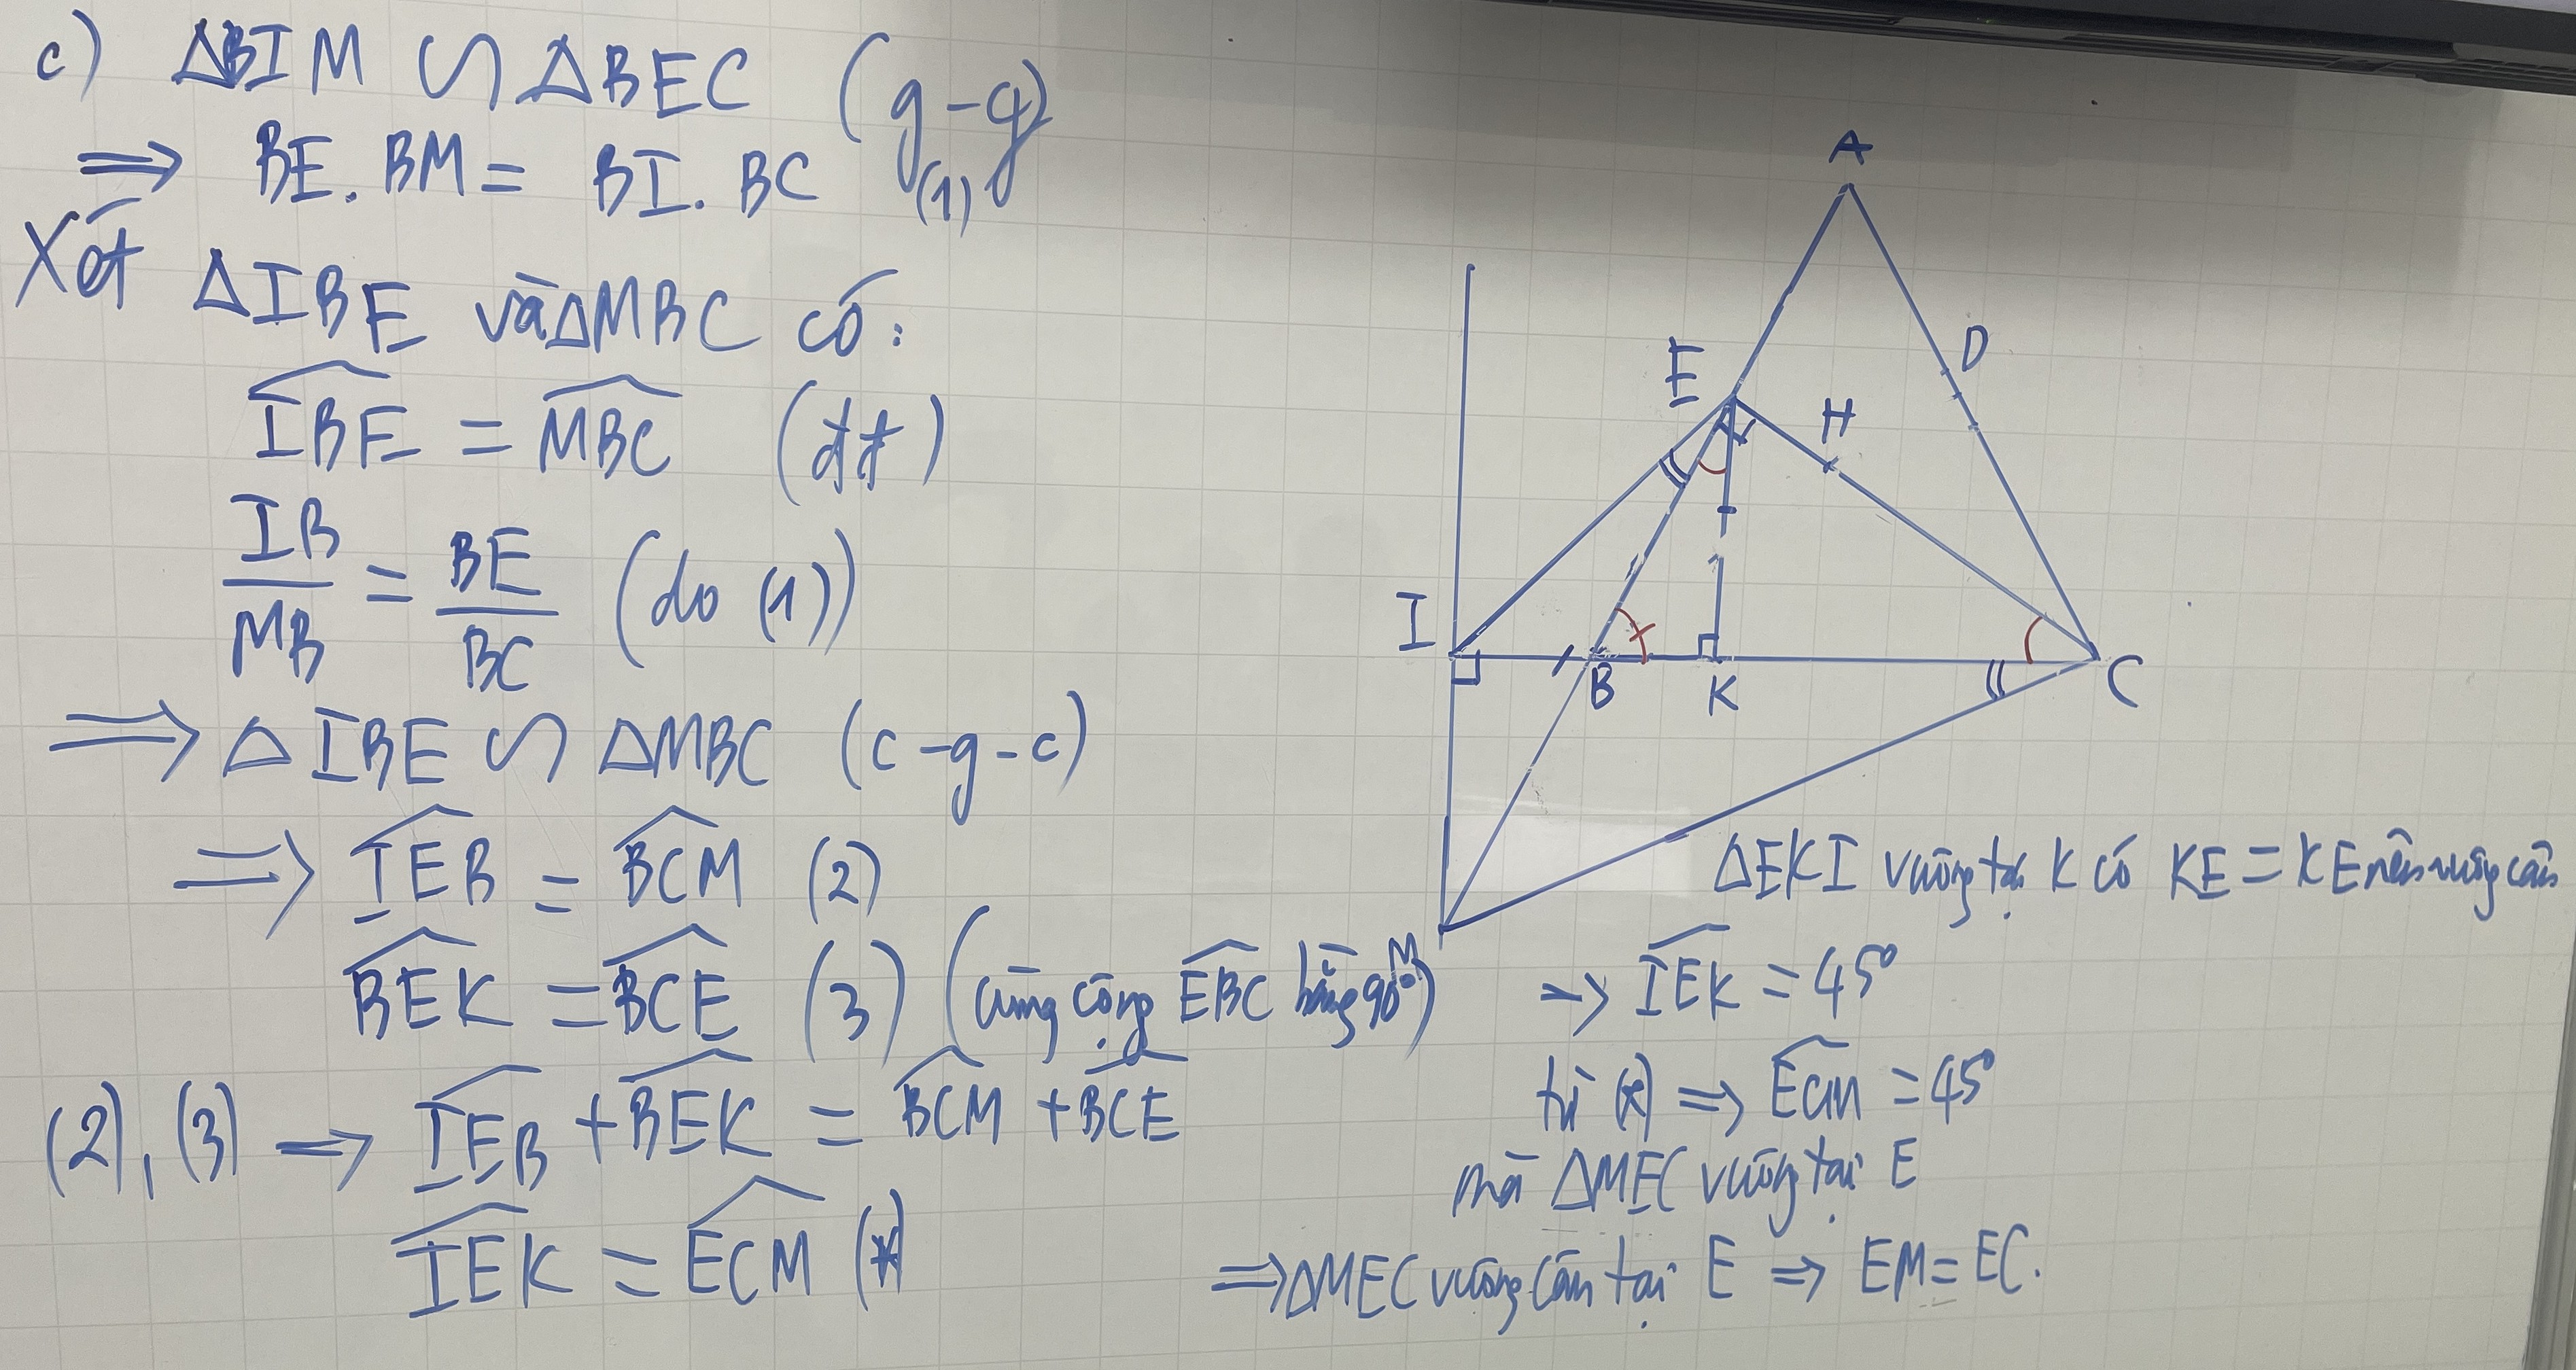 c) ΔBIM ∽ ΔBEC (g-g)
⟹ BE.BM = BI.BC (1)
Xét ΔIBE và ΔMBC có:
\widehat{IBE} = \widehat{MBC} (đđ)
\frac{IB}{MB} = \frac{BE}{BC} (do (1))
⟹ ΔIBE ∽ ΔMBC (c-g-c)
⟹ \widehat{IEB} = \widehat{BCM} (2)
\widehat{BEK} = \widehat{BCE} (3) (cùng cộng \widehat{EBC} bằng 90°)
(2), (3) ⟹ \widehat{IEB} + \widehat{BEK} = \widehat{BCM} + \widehat{BCE}
\widehat{IEK} = \widehat{ECM} (*)
A
D
E
H
I
B
K
C
M
ΔEKI vuông tại K có KE = KE nên vuông cân
⟹ \widehat{IEK} = 45°
từ (*) ⟹ \widehat{ECM} = 45°
mà ΔMEC vuông tại E
⟹ ΔMEC vuông cân tại E ⟹ EM = EC.